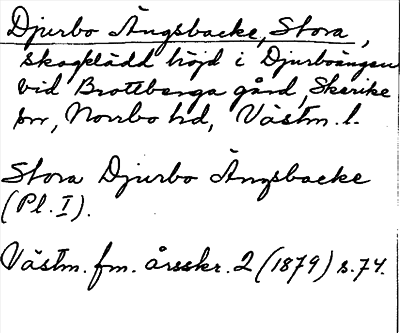 Djurbo Ängsbacke, Stora,
skogklädd höjd i Djurboängen
vid Brottberga gård, Skerike
sn, Norrbo hd, Västm. l.
Stora Djurbo Ängsbacke
(Pl. I).
Västm. fm. årsskr. 2 (1879) s. 74.